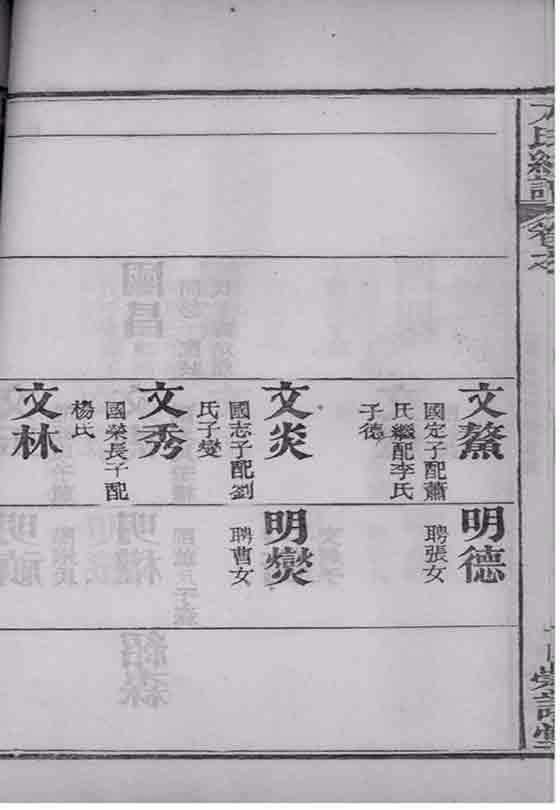 氏總譜
卷之
文鰲
國定子配蕭
氏繼配李氏
子德
文炎
國志子配劉
氏子燮
文秀
國榮長子配
楊氏
文林
明德
聘張女
明燮
聘曹女